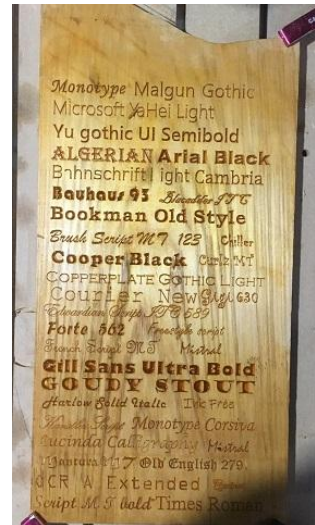 Monotype Malgun Gothic
Microsoft YaHei Light
Yu gothic UI Semibold
ALGERIAN Arial Black
Bnhnschrift Light Cambria
Bauhaus 93 Blacadder ITC
Bookman Old Style
Brush Script MT 123 Chiller
Cooper Black Curlz MT
COPPERPLATE GOTHIC LIGHT
Courier New Gigi 630
Edwardian Script ITC 589
Forte 562 Freestyle script
French Script MT Mistral
Gill Sans Ultra Bold
GOUDY STOUT
Harlow Solid Italic Ink Free
Monotype Corsiva
Lucinda Calligraphy Mistral
Old English 279
OCR A Extended
Script MT bold Times Roman